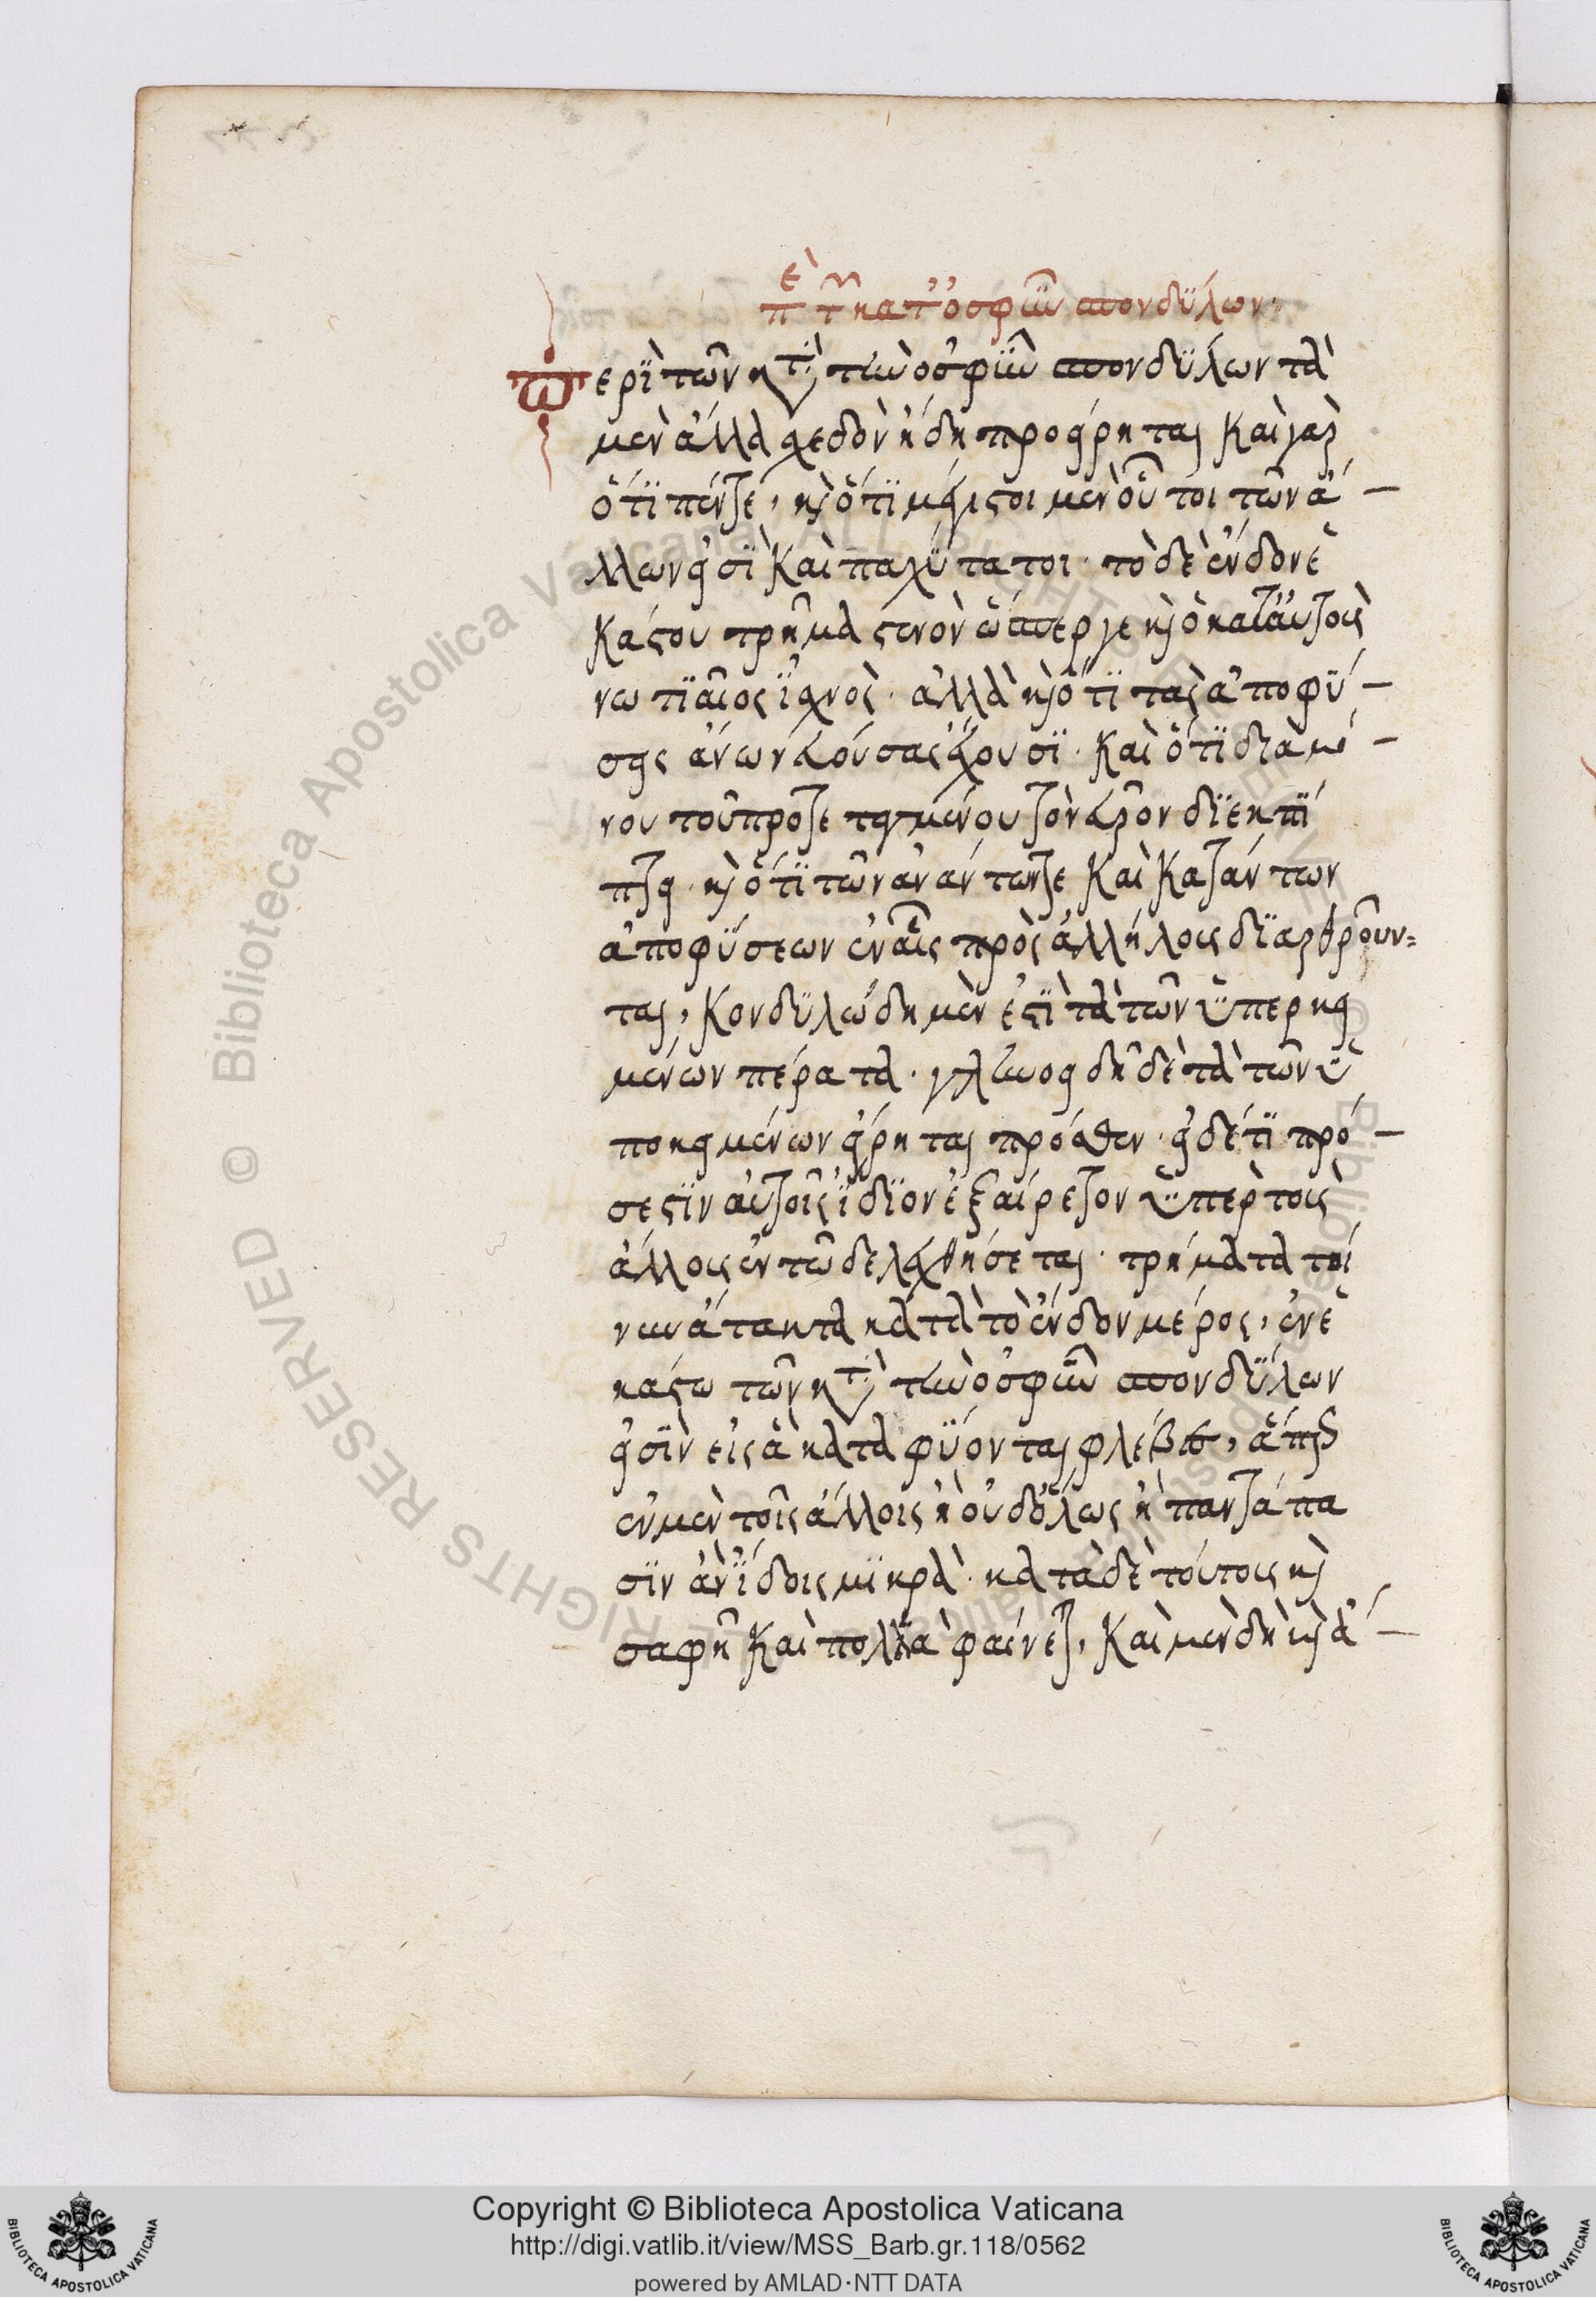 πε τῶν κατ' ὀσφῦν σπονδύλων·
Περὶ τῶν κατὰ τὴν ὀσφὺν σπονδύλων τὰ
μὲν ἄλλα σχεδὸν ἤδη προείρηται καὶ γὰρ
ὅτι πέντε, καὶ ὅτι μέγιστοι μὲν οὗτοι τῶν ἄ-
λλων εἰσὶ καὶ παχύτατοι· τὸ δὲ ἔνδον ἑ
κάστου τρῆμα στενὸν ὥσπερ γε καὶ ὁ κατ' αὐτοὺς
νωτιαῖος ἰσχνὸς· ἀλλὰ καὶ ὅτι τὰς ἀποφύ-
σεις ἄνω νευούσας ἔχουσι· καὶ ὅτι διὰ μό-
νου τοῦ προτεταγμένου τὸ νεῦρον διεκπί
πτει· καὶ ὅτι τῶν ἀνάντων τε καὶ κατάντων
ἀποφύσεων ἐν αἷς πρὸς ἀλλήλους διαρθροῦν-
ται, κονδυλώδη μὲν ἐστὶ τὰ τῶν ὑπερκει
μένων πέρατα· γληνοειδῆ δὲ τὰ τῶν ὑ
ποκειμένων εἴρηται πρόσθεν· εἰ δέ τι πρό-
σεστιν αὐτοῖς ἴδιον ἐξαίρετον ὑπὲρ τοὺς
ἄλλους ἐνταῦθα λεχθήσεται· τρήματα τοί
νυν ἄτακτα κατὰ τὸ ἔνδον μέρος, ἐν ἑ
κάστω τῶν κατὰ τὴν ὀσφὺν σπονδύλων
εἰσὶν εἰς ἃ καταφύονται φλέβες, ἅπερ
ἐν μὲν τοῖς ἄλλοις ἢ οὐδ' ὅλως ἢ παντάπα
σιν ἂν ἴδοις μικρὰ· κατὰ δὲ τούτους καὶ
σαφῆ καὶ πολλὰ φαίνεται, καὶ μὲν δὴ καὶ ἀ-
Copyright © Biblioteca Apostolica Vaticana
http://digi.vatlib.it/view/MSS_Barb.gr.118/0562
powered by AMLAD·NTT DATA